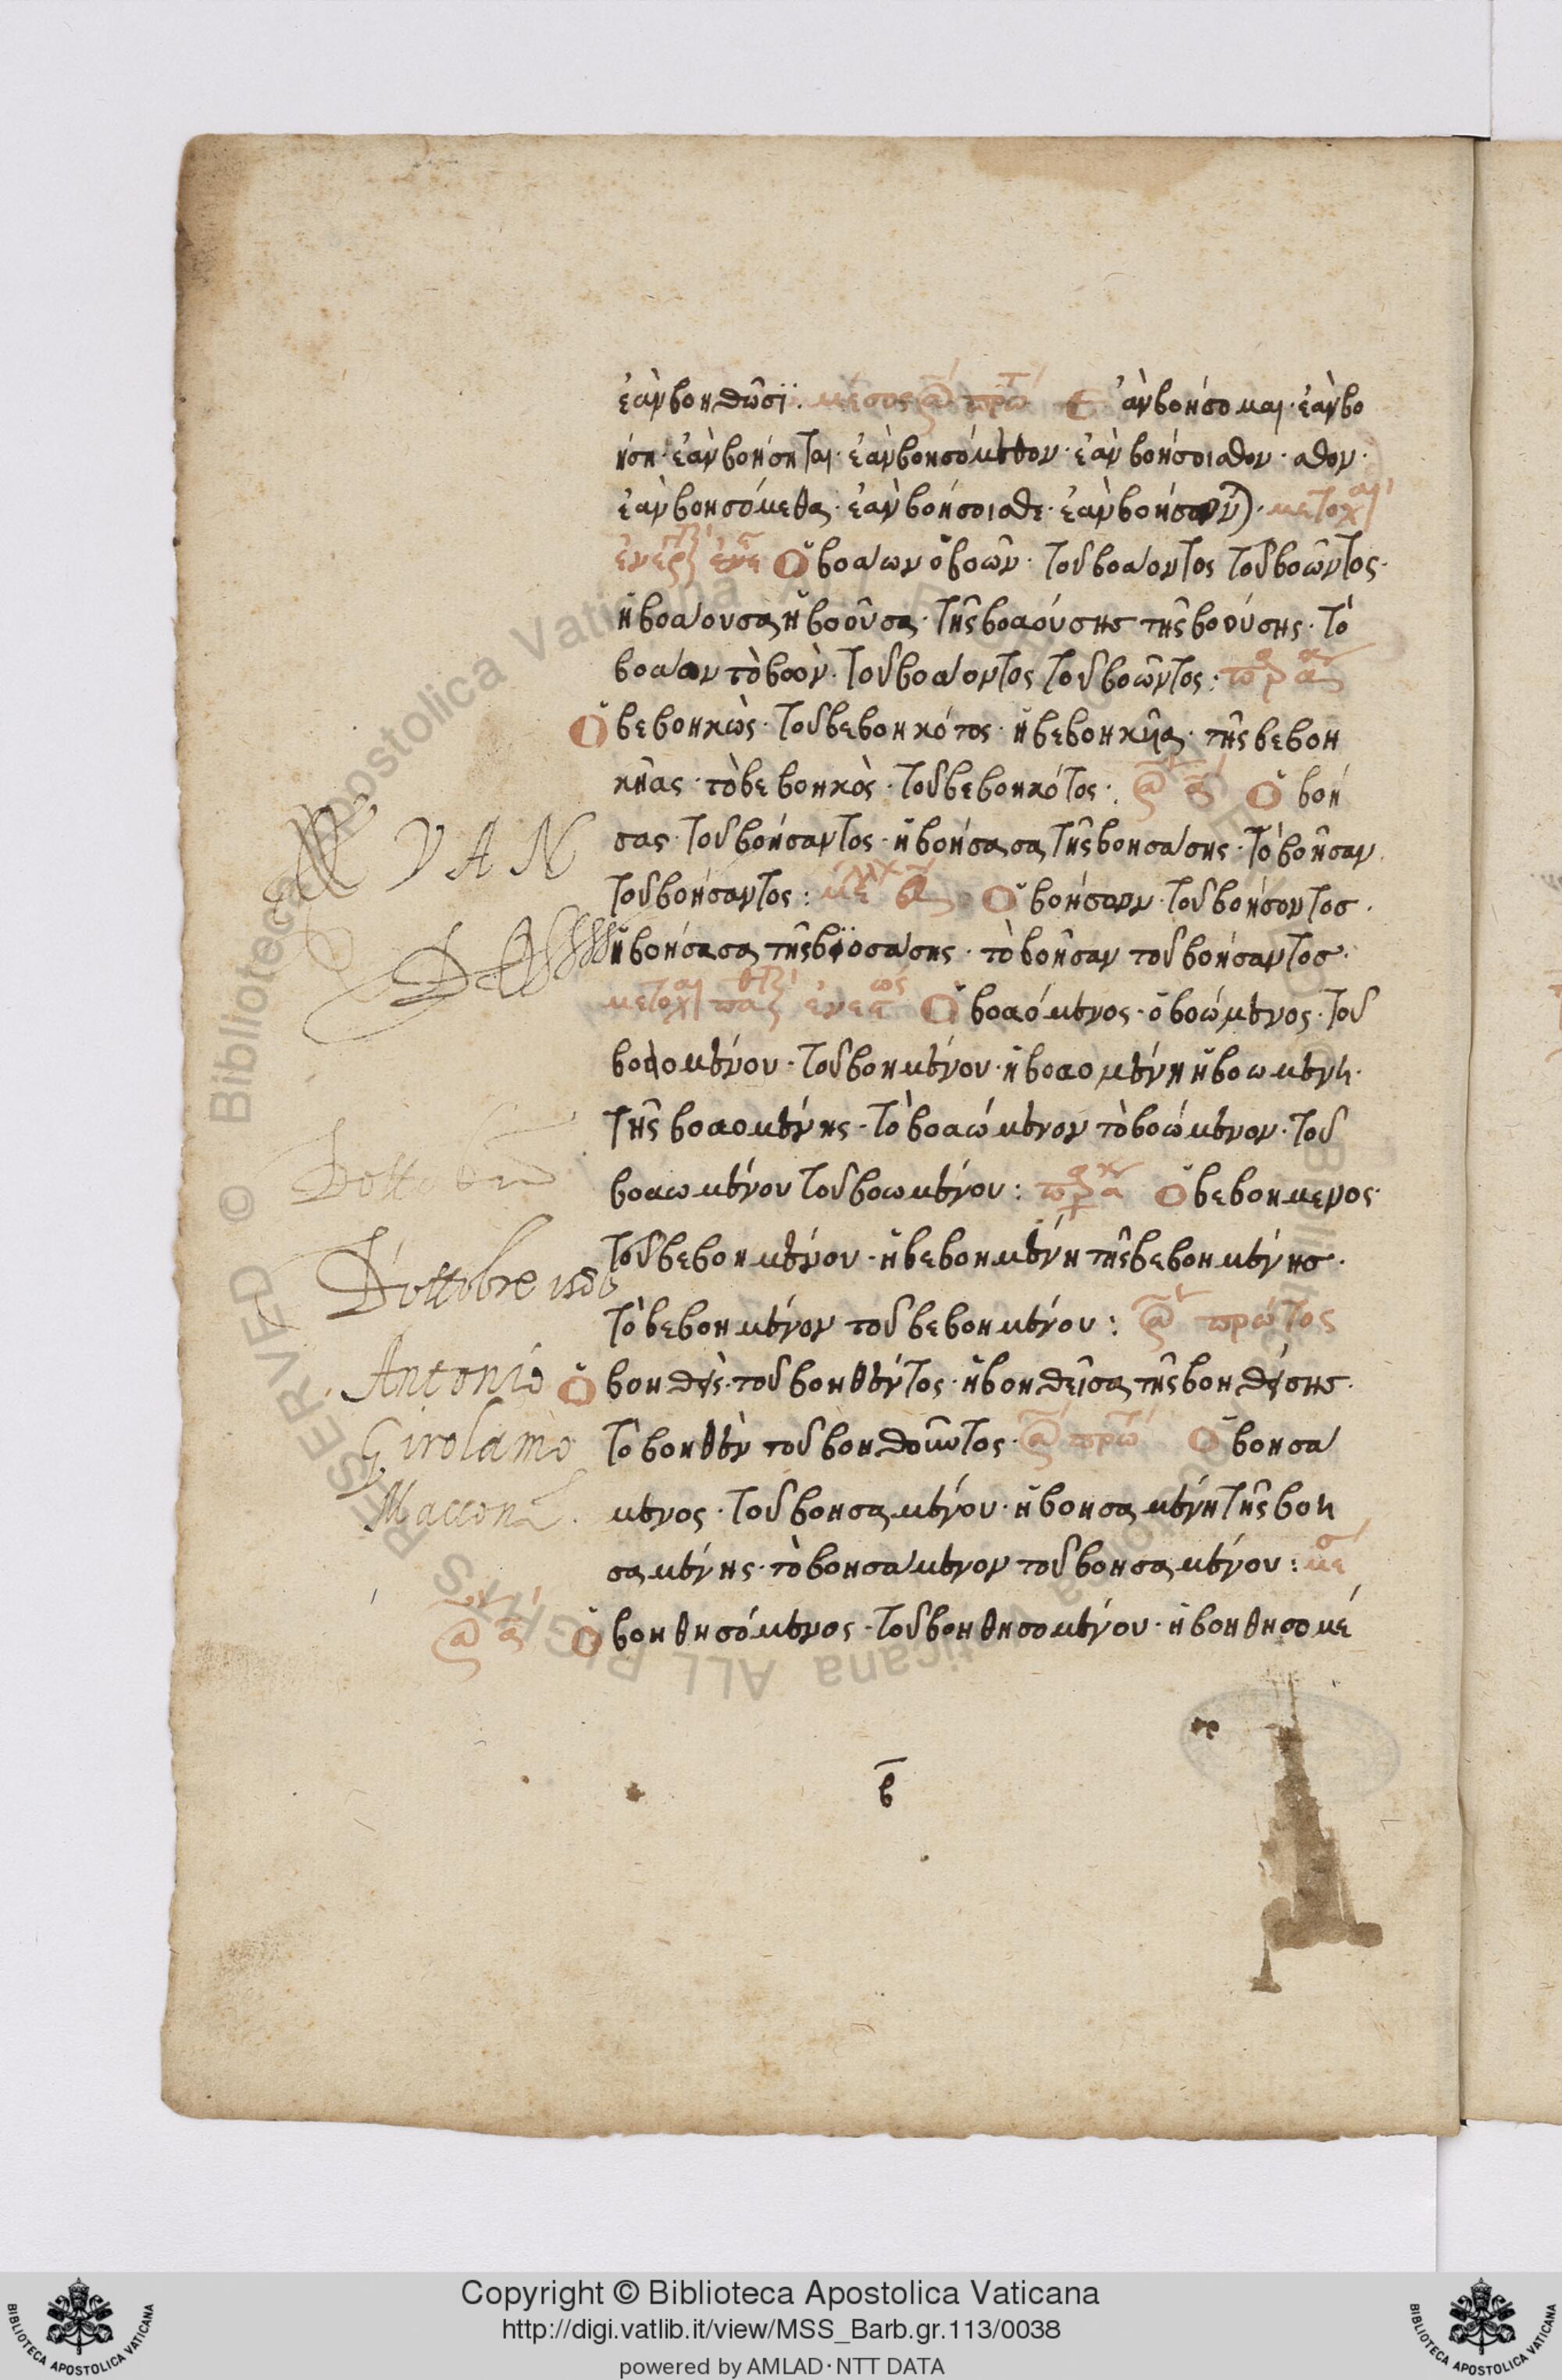 ἐὰν βοηθῶσϊ: μέσος ἀό πρῶ Ἐὰν βοήσομαι· ἐὰν βο
ήση· ἐὰν βοήσηται· ἐὰν βοησόμεθον· ἐὰν βοήσοισθον· σθον·
ἐὰν βοησόμεθα· ἐὰν βοήσοισθε· ἐὰν βοήσων)· μετοχαὶ
Ὁ βοάων ὁ βοῶν· τοῦ βοάοντος τοῦ βοῶντος·
ἡ βοάουσα ἡ βοοῦσα· τῆς βοαούσης τῆς βοούσης· τὸ
βοάον τὸ βοὸν· τοῦ βοάοντος τοῦ βοῶντος:
Ὁ βεβοηκὼς· τοῦ βεβοηκότος· ἡ βεβοηκῆα· τῆς βεβοη
κῆας· τὸ βεβοηκὸς· τοῦ βεβοηκότος: Ὁ βοή
σας· τοῦ βοήσαντος· ἡ βοήσασα τῆς βοησάσης· τὸ βοῆσαν
τοῦ βοήσαντος: Ὁ βοήσων· τοῦ βοήσοντοσ·
ἡ βοήσασα τῆς βοοσάσης· τὸ βοῆσαν τοῦ βοήσαντοσ·
Ὁ βοαόμενος· ὁ βοώμενος· τοῦ
βοαομένου· τοῦ βοημένου· ἡ βοαομένη ἡ βοωμενη·
τῆς βοαομένης· τὸ βοαώμενον τὸ βοώμενον· τοῦ
βοαωμένου τοῦ βοωμένου: Ὁ βεβοημενος·
τοῦ βεβοημένου· ἡ βεβοημένη τῆς βεβοημένησ·
τὸ βεβοημένον τοῦ βεβοημένου: πρώτος
Ὁ βοηθεὶς· τοῦ βοηθέντος· ἡ βοηθεῖσα τῆς βοηθείσησ·
τὸ βοηθὲν τοῦ βοηθοῦντος· Ὁ βοησά
μενος· τοῦ βοησαμένου· ἡ βοησαμένη τῆς βοη
σαμένης· τὸ βοησάμενον τοῦ βοησαμένου:
Ὁ βοηθησόμενος· τοῦ βοηθησομένου· ἡ βοηθησομέ
β
VAN
D'ottobre
Antonio
Girolamo
Copyright © Biblioteca Apostolica Vaticana
http://digi.vatlib.it/view/MSS_Barb.gr.113/0038
powered by AMLAD·NTT DATA
BIBLIOTECA APOSTOLICA VATICANA
BIBLIOTECA APOSTOLICA VATICANA